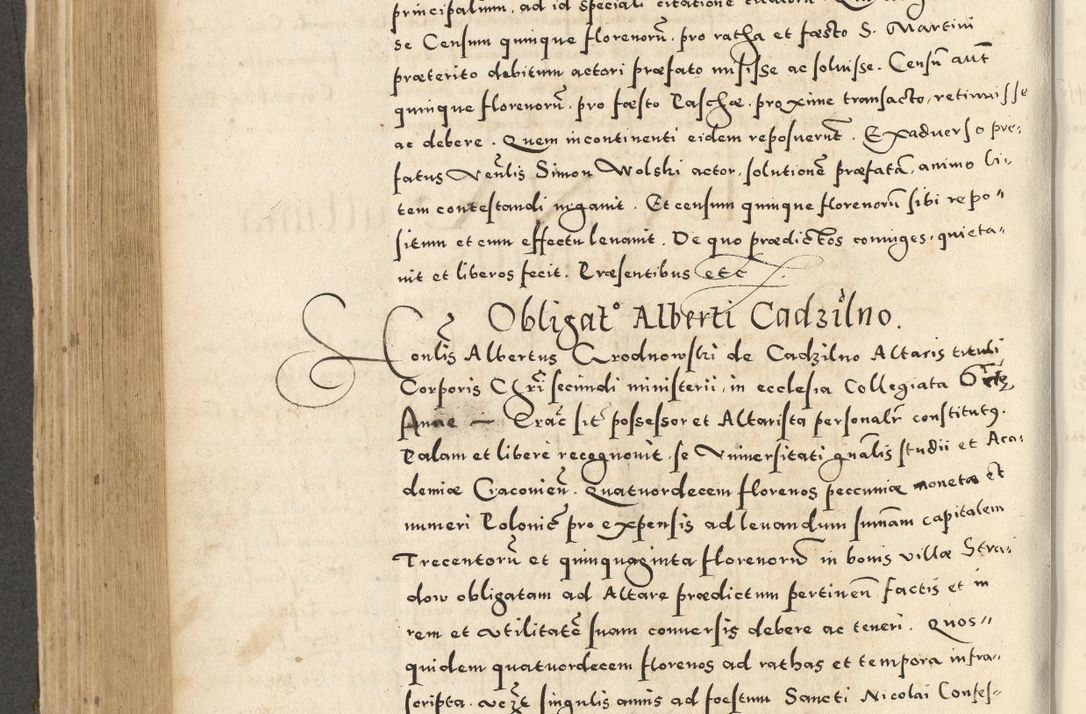 principalium, ad id speciali citatione
se Censum quinque florenorũ, pro ratha et fæsto S. Martini
præterito debitum actori præfato misisse ac soluisse. Censũ aut̃
quinque florenorũ, pro fæsto Paschæ, proxime transacto, retinuisse
ac debere. Quem incontinenti eidem reposuerũt. Exaduerso præ-
fatus Veñlis Simon Wolski actor, solutionẽ præfatã, animo li-
tem contestandi negauit. Et censum quinque florenorũ sibi repo-
situm et cum effectu leuauit. De quo prædictos coniuges, quieta-
uit et liberos fecit. Præsentibus etc
Obligatº Alberti Cadzilno.
Honlis Albertus Grodnowski de Cadzilno Altaris tituli
Corporis Chrĩ secundi ministerii, in ecclesia Collegiata
Annæ — Crac̃ sitẽ possessor et Altarista personalr̃ constitutq.
Palam et liberè recognouit, se Vniuersitati gñalis studii et Aca-
demiæ Cracouieñ. Quatuordecem florenos peccuniæ monetæ et
numeri Poloniẽ pro expensis ad leuandum sum̃am capitalem
Trecentorũ et quinquaginta florenorũ in bonis villæ Stra-
dow obligatam ad Altare prædictum pertineñ factis et in
rem et vtilitatẽ suam conuersis debere ac teneri. Quos-
quidem quatuordecem florenos ad rathas et tempora infra-
scripta. videlt singulis annis ad foestum Sancti Nicolai Confes-